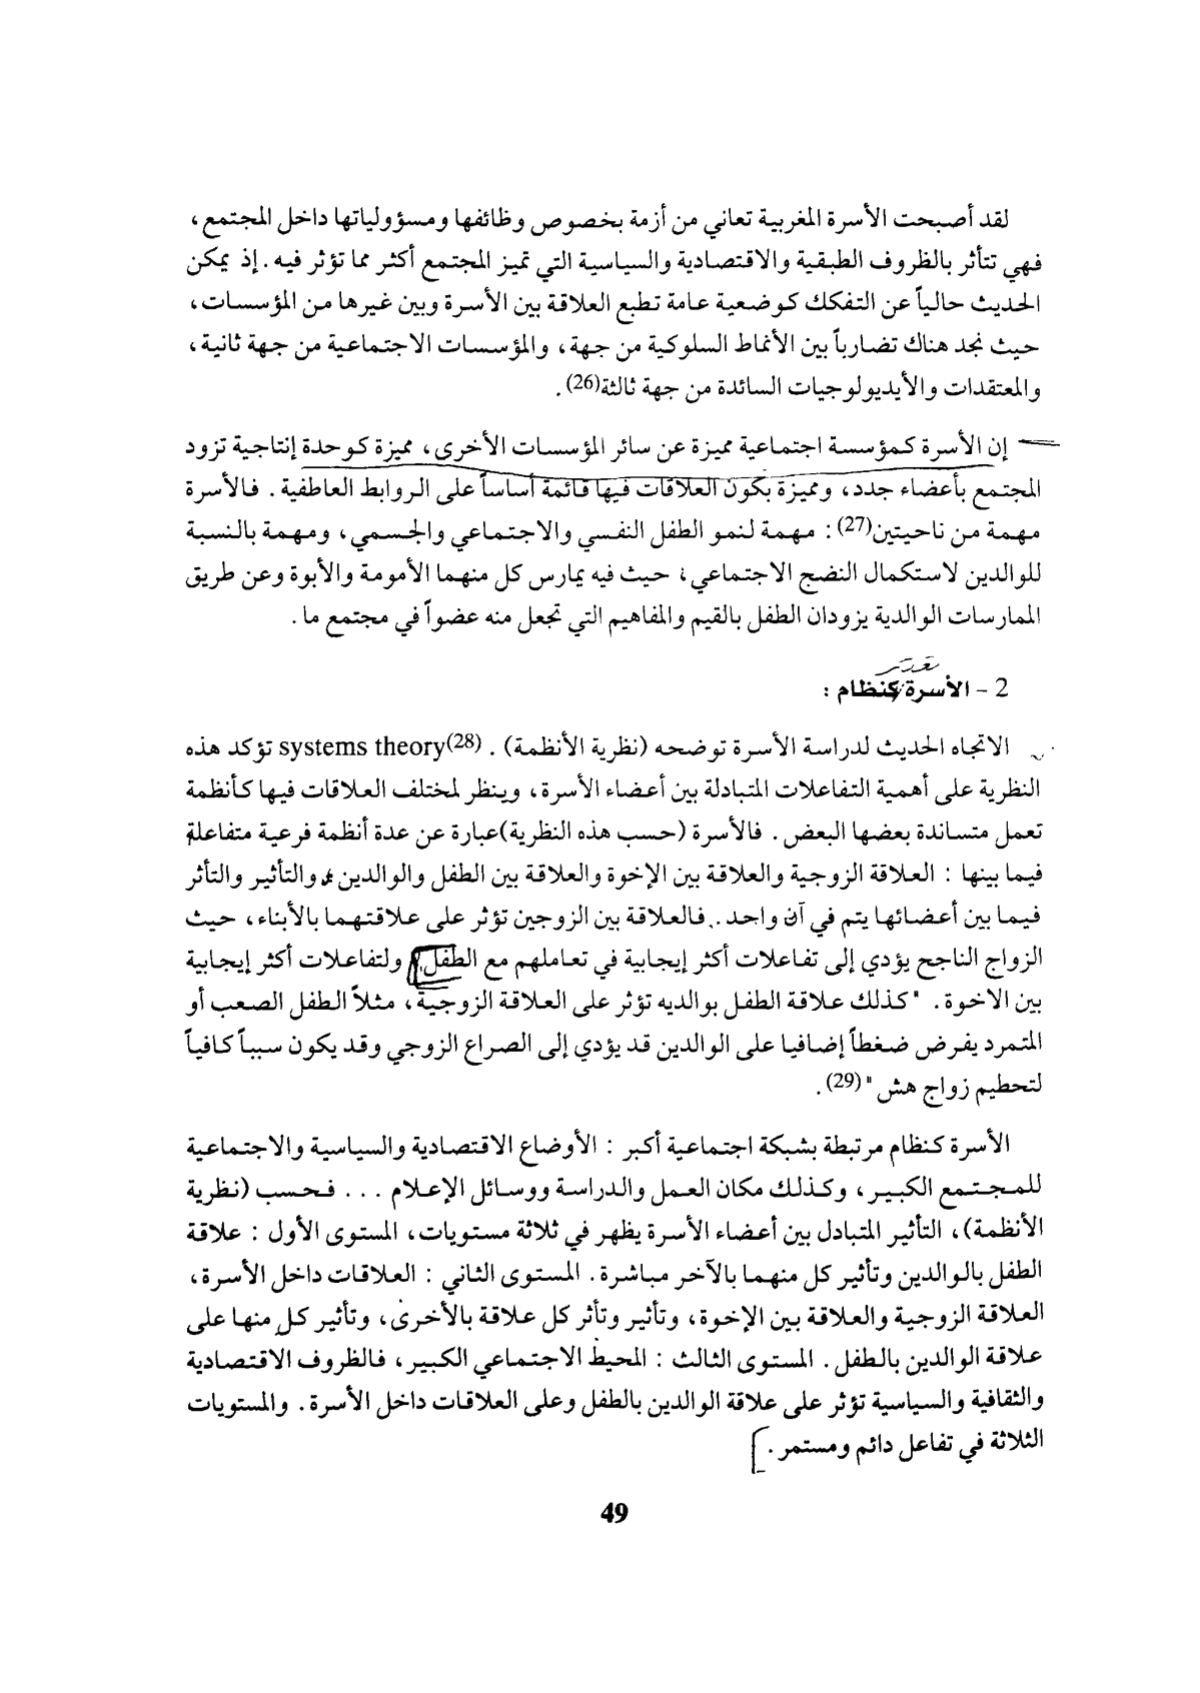 لقد أصبحت الأسرة المغربية تعاني من أزمة بخصوص وظائفها ومسؤولياتها داخل المجتمع،
فهي تتأثر بالظروف الطبقية والاقتصادية والسياسية التي تميز المجتمع أكثر مما تؤثر فيه. إذ يمكن
الحديث حالياً عن التفكك كوضعية عامة تطبع العلاقة بين الأسرة وبين غيرها من المؤسسات،
حيث نجد هناك تضارباً بين الأنماط السلوكية من جهة، والمؤسسات الاجتماعية من جهة ثانية،
والمعتقدات والأيديولوجيات السائدة من جهة ثالثة(26).
إن الأسرة كمؤسسة اجتماعية مميزة عن سائر المؤسسات الأخرى، مميزة كوحدة إنتاجية تزود
المجتمع بأعضاء جدد، ومميزة بكون العلاقات فيها قائمة أساساً على الروابط العاطفية. فالأسرة
مهمة من ناحيتين(27): مهمة لنمو الطفل النفسي والاجتماعي والجسمي، ومهمة بالنسبة
للوالدين لاستكمال النضج الاجتماعي؛ حيث فيه يمارس كل منهما الأمومة والأبوة وعن طريق
الممارسات الوالدية يزودان الطفل بالقيم والمفاهيم التي تجعل منه عضواً في مجتمع ما.
2 - الأسرة كنظام:
الاتجاه الحديث لدراسة الأسرة توضحه (نظرية الأنظمة). systems theory(28) تؤكد هذه
النظرية على أهمية التفاعلات المتبادلة بين أعضاء الأسرة، وينظر لمختلف العلاقات فيها كأنظمة
تعمل متساندة بعضها البعض. فالأسرة (حسب هذه النظرية)عبارة عن عدة أنظمة فرعية متفاعلة
فيما بينها: العلاقة الزوجية والعلاقة بين الإخوة والعلاقة بين الطفل والوالدين، والتأثير والتأثر
فيما بين أعضائها يتم في آن واحد.. فالعلاقة بين الزوجين تؤثر على علاقتهما بالأبناء، حيث
الزواج الناجح يؤدي إلى تفاعلات أكثر إيجابية في تعاملهم مع الطفل، ولتفاعلات أكثر إيجابية
بين الاخوة. "كذلك علاقة الطفل بوالديه تؤثر على العلاقة الزوجية، مثلاً الطفل الصعب أو
المتمرد يفرض ضغطاً إضافيا على الوالدين قد يؤدي إلى الصراع الزوجي وقد يكون سبباً كافياً
لتحطيم زواج هش"(29).
الأسرة كنظام مرتبطة بشبكة اجتماعية أكبر: الأوضاع الاقتصادية والسياسية والاجتماعية
للمجتمع الكبير، وكذلك مكان العمل والدراسة ووسائل الإعلام ... فحسب (نظرية
الأنظمة)، التأثير المتبادل بين أعضاء الأسرة يظهر في ثلاثة مستويات، المستوى الأول: علاقة
الطفل بالوالدين وتأثير كل منهما بالآخر مباشرة. المستوى الثاني: العلاقات داخل الأسرة،
العلاقة الزوجية والعلاقة بين الإخوة، وتأثير وتأثر كل علاقة بالأخرى، وتأثير كل منها على
علاقة الوالدين بالطفل. المستوى الثالث: المحيط الاجتماعي الكبير، فالظروف الاقتصادية
والثقافية والسياسية تؤثر على علاقة الوالدين بالطفل وعلى العلاقات داخل الأسرة. والمستويات
الثلاثة في تفاعل دائم ومستمر.
49